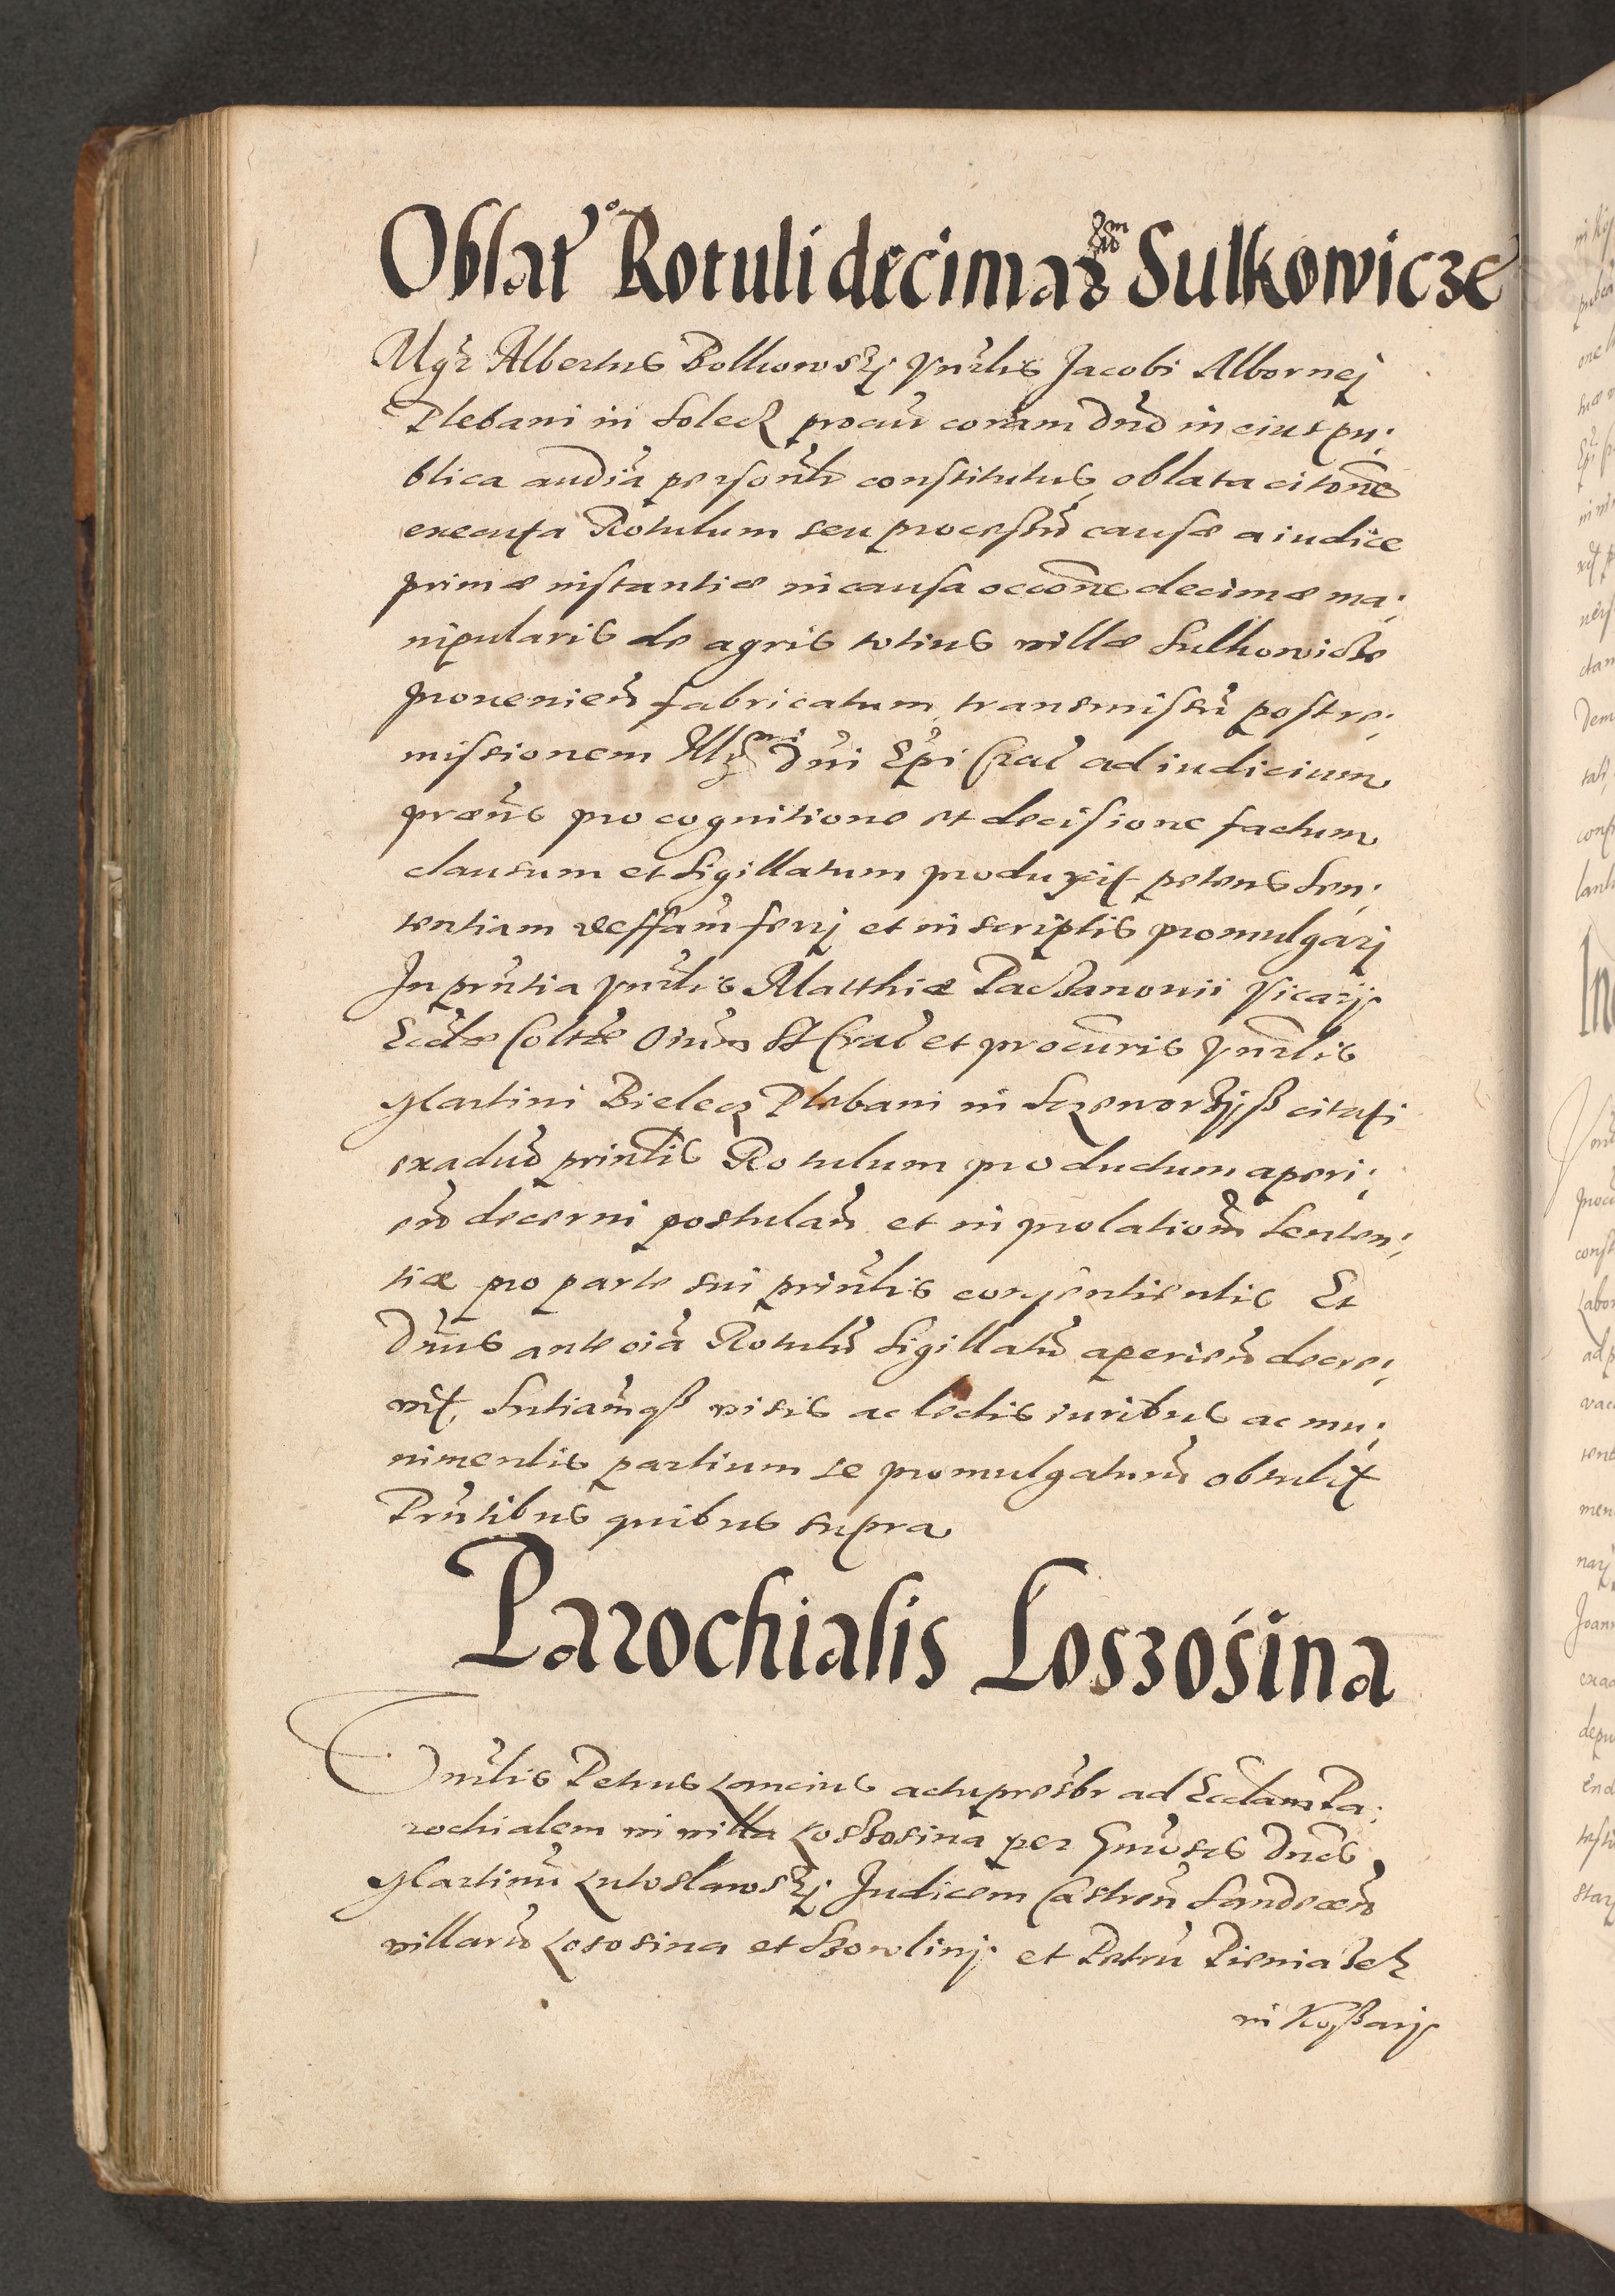 Oblat͠o Rotuli decimaꝝ Sulkowicze
Mgr͠ Albertus Bolkowskij Vnrlis͠ Jacobi Albornej
Plebani in Soleck procur͠ coram Dno͠ in eius pu:
blica audia͠ personlr͠ constitutus, oblata citone͠
executa Rotulum seu processu͠ causæ a iudice
primæ instantiæ in causa occone͠ decimæ ma:
nipularis de agris totius villæ Sulkowicze
prouenien͠ fabricatum, transmissu͠ post re:
missionem Illmi Dni͠ Epi͠ Crac͠ ad iudicium
præns͠ pro cognitione et decisione factum
clausum et sigillatum produxit petens sen:
tentiam deffam͠ ferrj et in scriptis promulgarj
In pntia͠ Vnrlis͠ Matthiæ Paczanowii Vicarij
Ecclæ͠ Coltæ͠ Oium͠ SS Crac͠ et procuris͠ Vnrlis͠
Martini Bielecz Plebani in citati
ex aduo͠ prinlis͠ Rotulum productum aperi:
en͠ decerni postulan͠ et in prolation͠ senten:
tiæ pro parte sui prinlis͠ consentientis Et
Dnus͠ ante oia͠ Rotulu͠ sigillatu͠ aperien͠ decre:
uit, sntiamqß͠ visis ac lectis iuribus ac mu:
nimentis partium se promulgaturu͠ obtulit
Pntibus͠ quibus supra
Parochialis Loszosina
Vnrlis͠ Petrus Lancius actu presbr͠ ad Ecclam͠ Pa:
rochialem in villa Loszosina per Gnrosos͠ Dnos͠
Martinu͠ Lutoslawskij Judicem Castren͠ Sandecen͠
villaru͠ Lososina et Szowlinij et Petru͠ Pieniazek
in